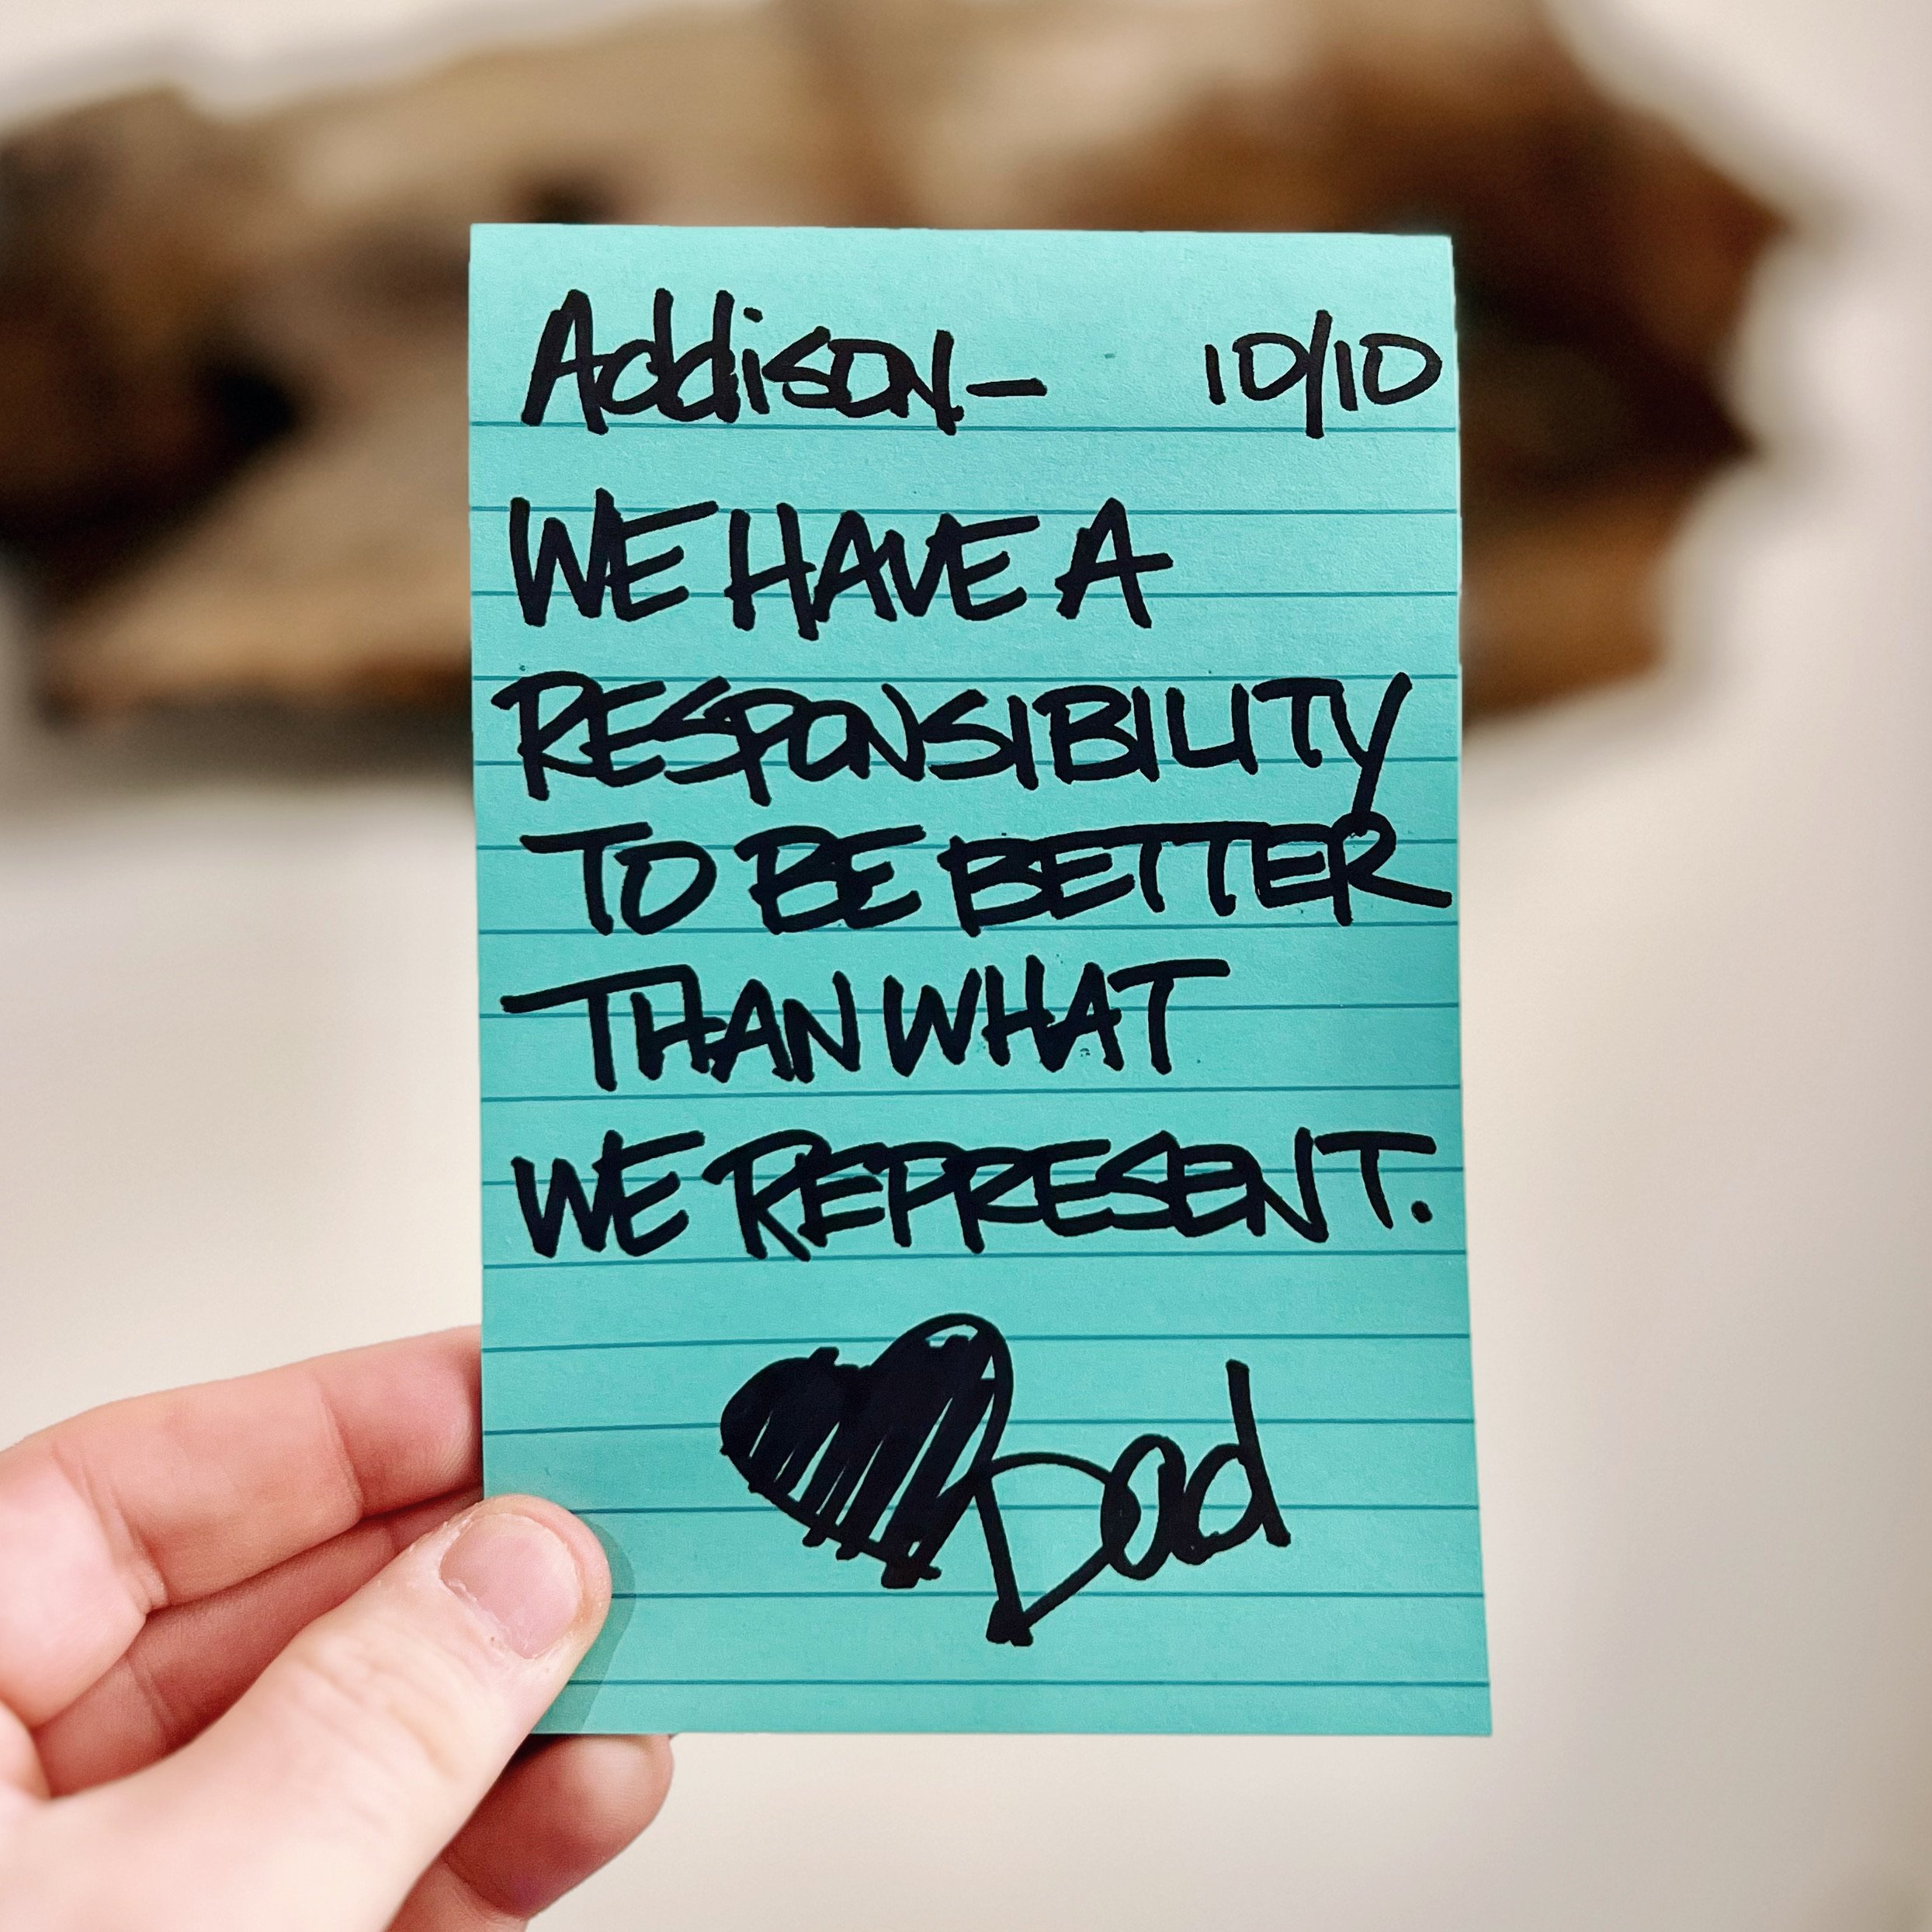 Addison— 10/10
WE HAVE A
RESPONSIBILITY
TO BE BETTER
THAN WHAT
WE REPRESENT.
Dad